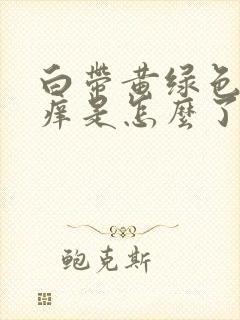 白带黄绿色
痒是怎麽了
鲍克斯